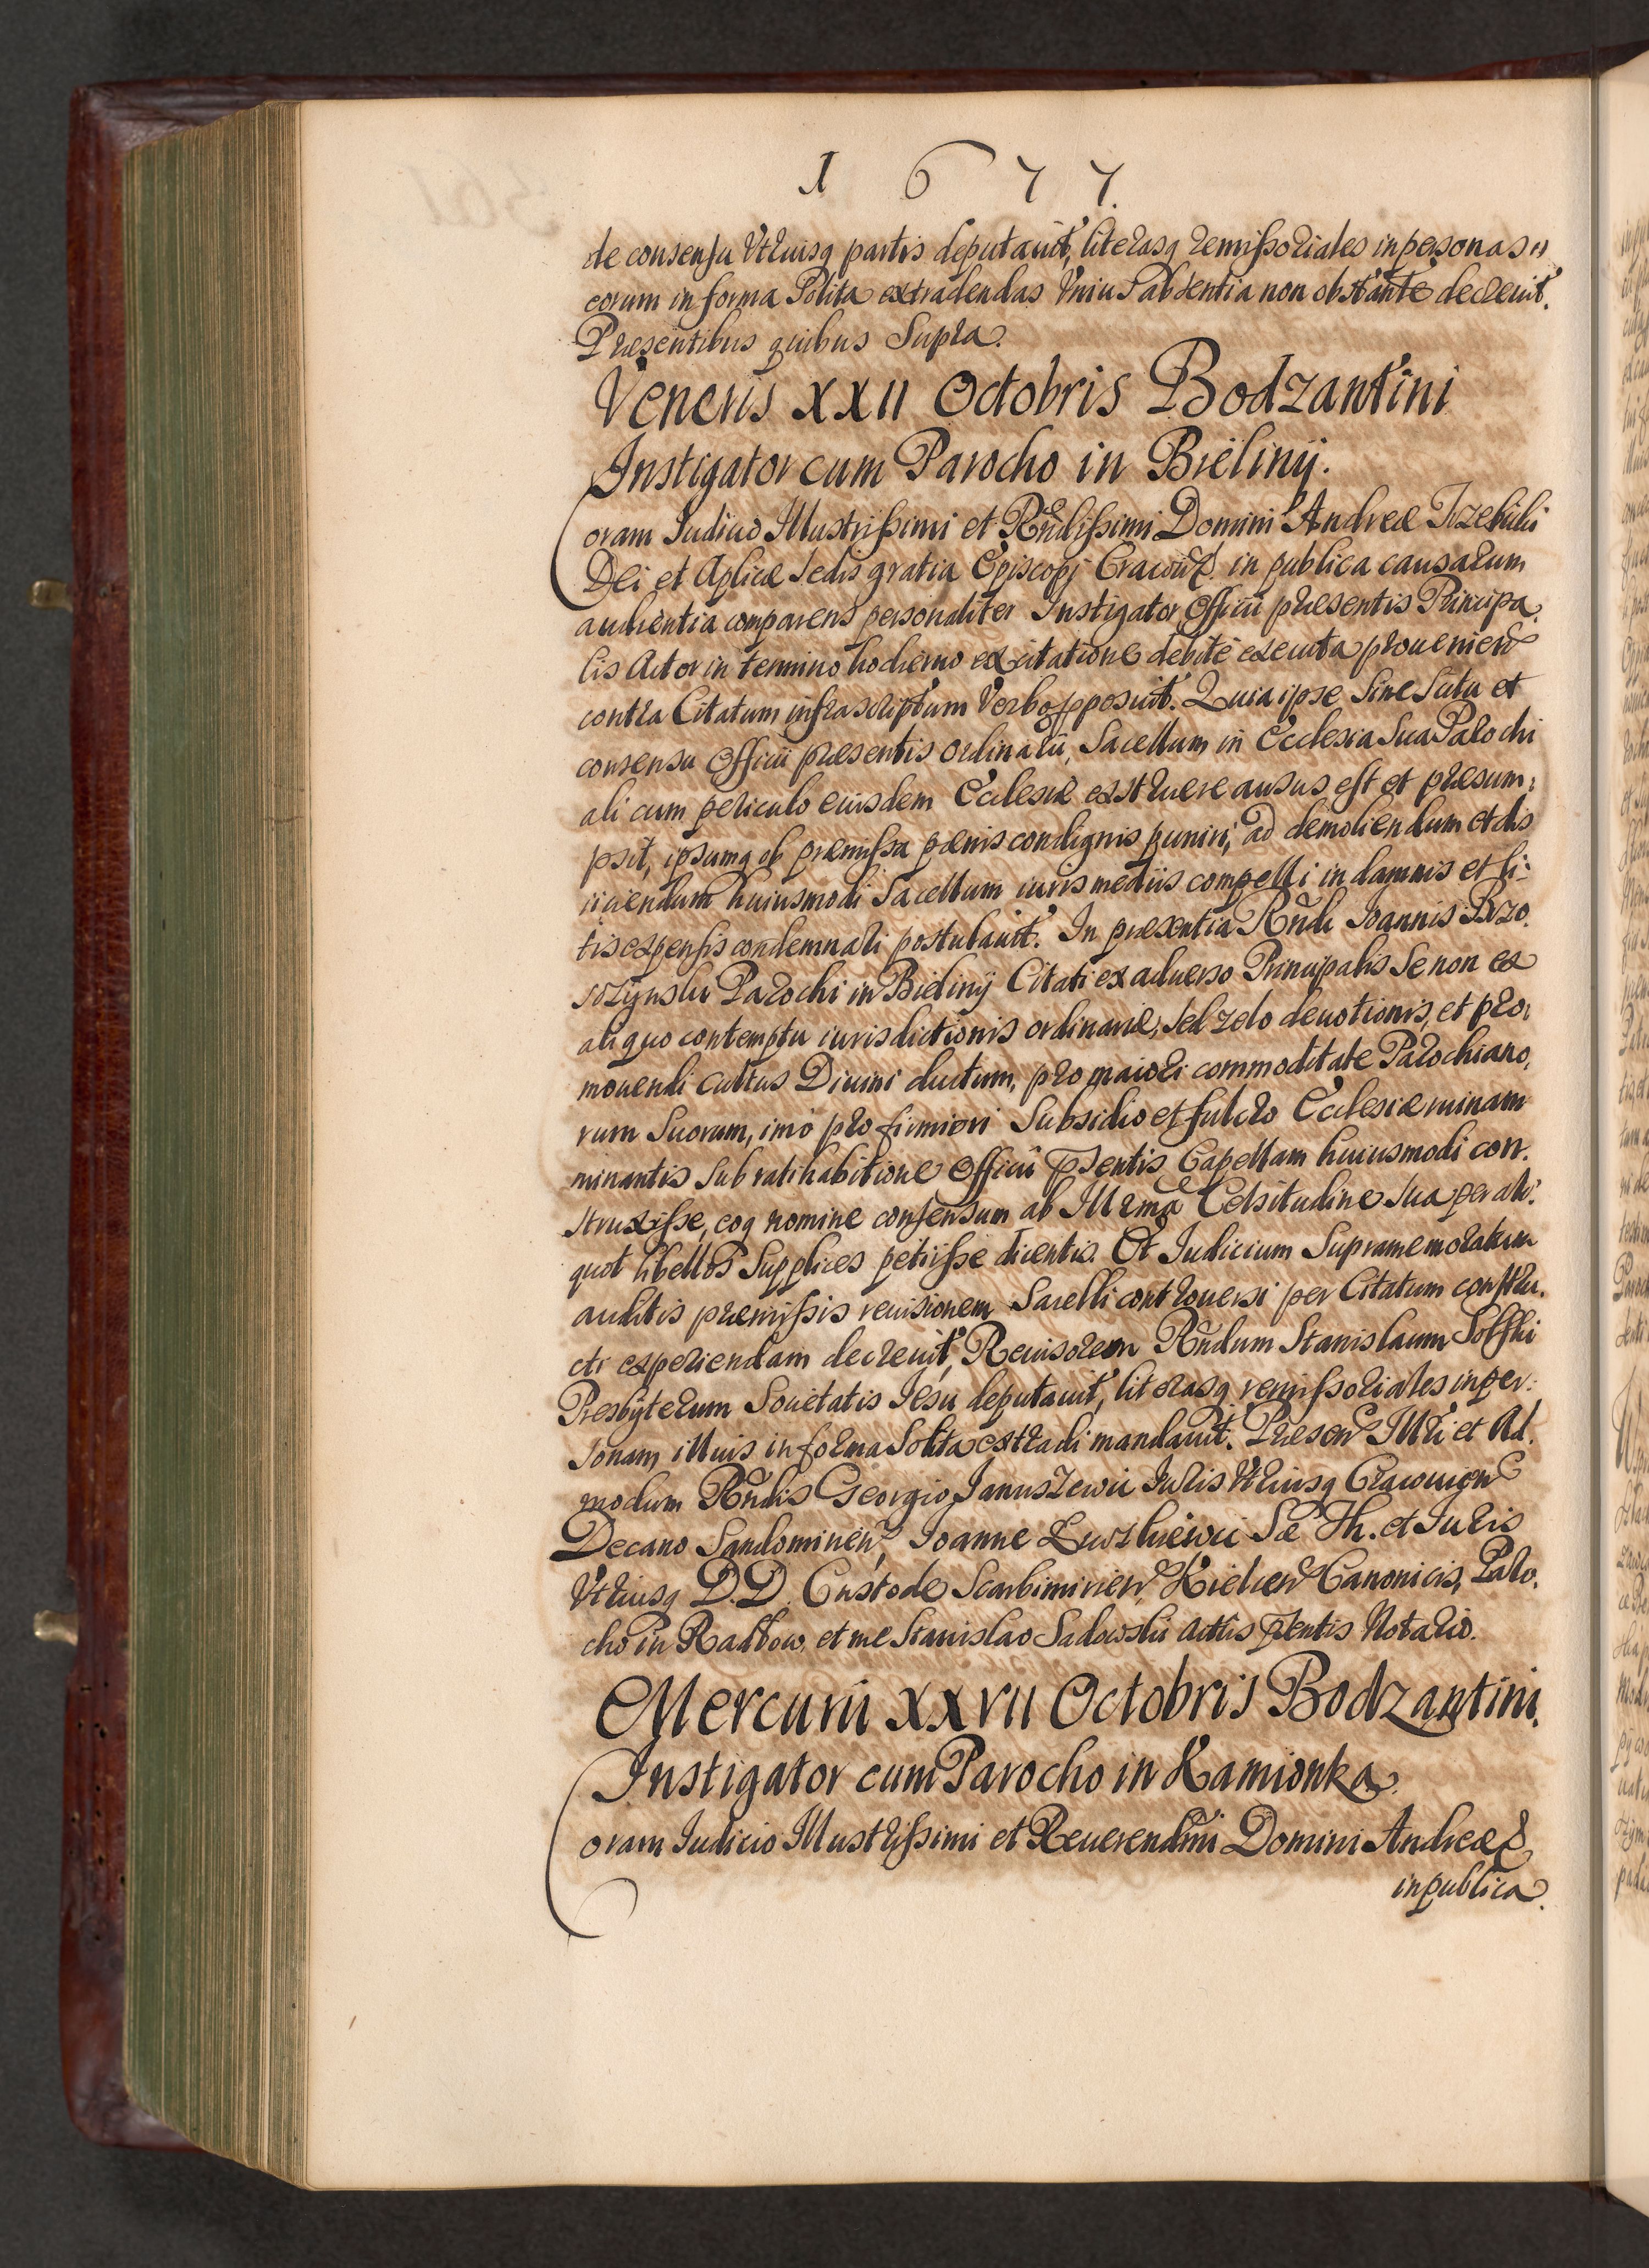 1677.
de consensu Vtriusq partis deputauit, literasq remissoriales in personas
eorum in forma Solita extradendas Vnius absentia non obstante decreuit.
Præsentibus quibus Supra.
Veneris XXII Octobris Bodzantini
Instigator cum Parocho in Bielinÿ.
Coram Iudicio Illustrissimi et Rñdissimi Domini Andreæ Trzebicki
Dei et Aplicæ Sedis gratia Episcopi Cracouiẽ. in publica causarum
audientia comparens personaliter Instigator Officii præsentis Principa
lis Actor in termino hodierno ex citatione debite executa prouenien
contra Citatum infrascriptum Verbo pposuit. Quia ipse sine Scitu et
consensu Officii præsentis ordinarii, Sacellum in Ecclesia Sua Parochi
ali cum periculo eiusdem Ecclesiæ exstruere ausus est et præsum:
psit, ipsumq ob præmissa pænis condignis puniri, ad demoliendum et dis
iiciendum huiusmodi Sacellum iuris mediis compelli in damnis et li:
tis expensis condemnari postulauit. In præsentia Rñdi Ioannis Brzo
sczynski Parochi in Bielinÿ Citati ex aduerso Principalis Se non ex
aliquo contemptu iurisdictionis ordinariæ, Sed zelo deuotionis, et pro:
mouendi cultus Diuini ductum, pro maiori commoditate Parochiano,
rum Suorum, imò pro firmiori Subsidio et fulcro Ecclesiæ ruinam
minantis Sub ratihabitione Officii pſentis Capellam huiusmodi con.
struxisse, eoq nomine consensum ab Illrma Celsitudine Sua per ali:
quot libellos Supplices petiisse dicentis. Et Iudicium Supramemoratum
auditis præmissis reuisionem Sacelli controuersi per Citatum constru.
cti experiendam decreuit, Reuisorem Rñdum Stanislaum Solski
Presbyterum Societatis Iesu deputauit, literasq remissoriales in per:
sonam illius in forma Solita extradi mandauit. Præsen Illri et Ad.
modum Rñdis Georgio Januszewic Iuris Vtriusq Cracouien
Decano Sandomirien, Ioanne Kwszkiewic Sæ Th. et Iuris
Vtriusq D.D. Custode Scarbimirien, Kielcen Canonicis, Paro,
cho in Radłow, et me Stanislao Sadowski Actis pſentis Notario.
Mercurii XXVII Octobris Bodzantini.
Instigator cum Parocho in Kamionka.
Coram Iudicio Illustrissimi et Reuerendmi Domini Andreæ &
in publica.